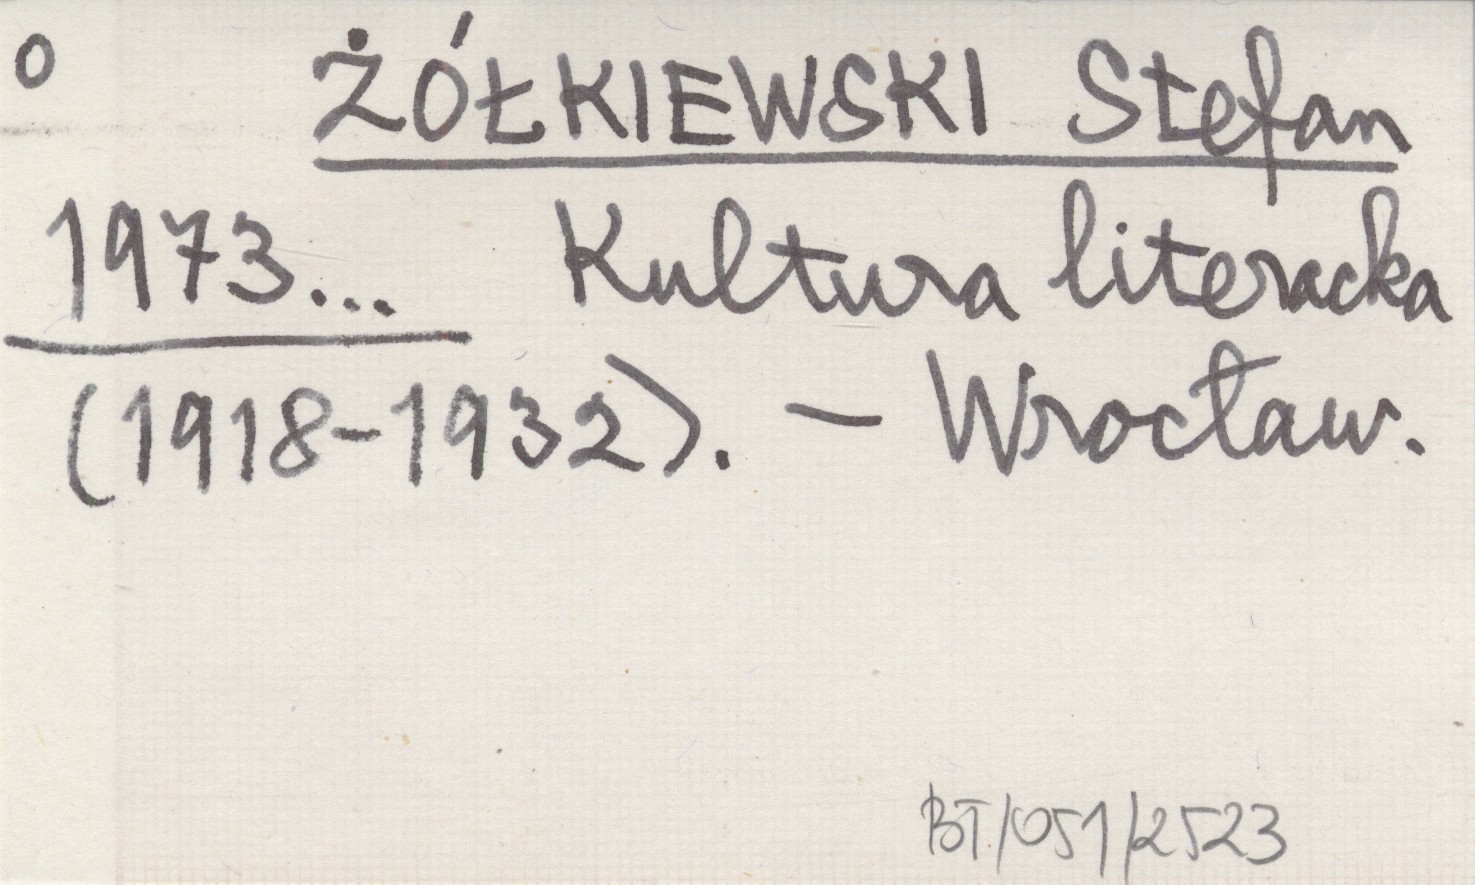 o ŻÓŁKIEWSKI Stefan
1973... Kultura literacka
(1918-1932). - Wrocław.
BT/051/2523